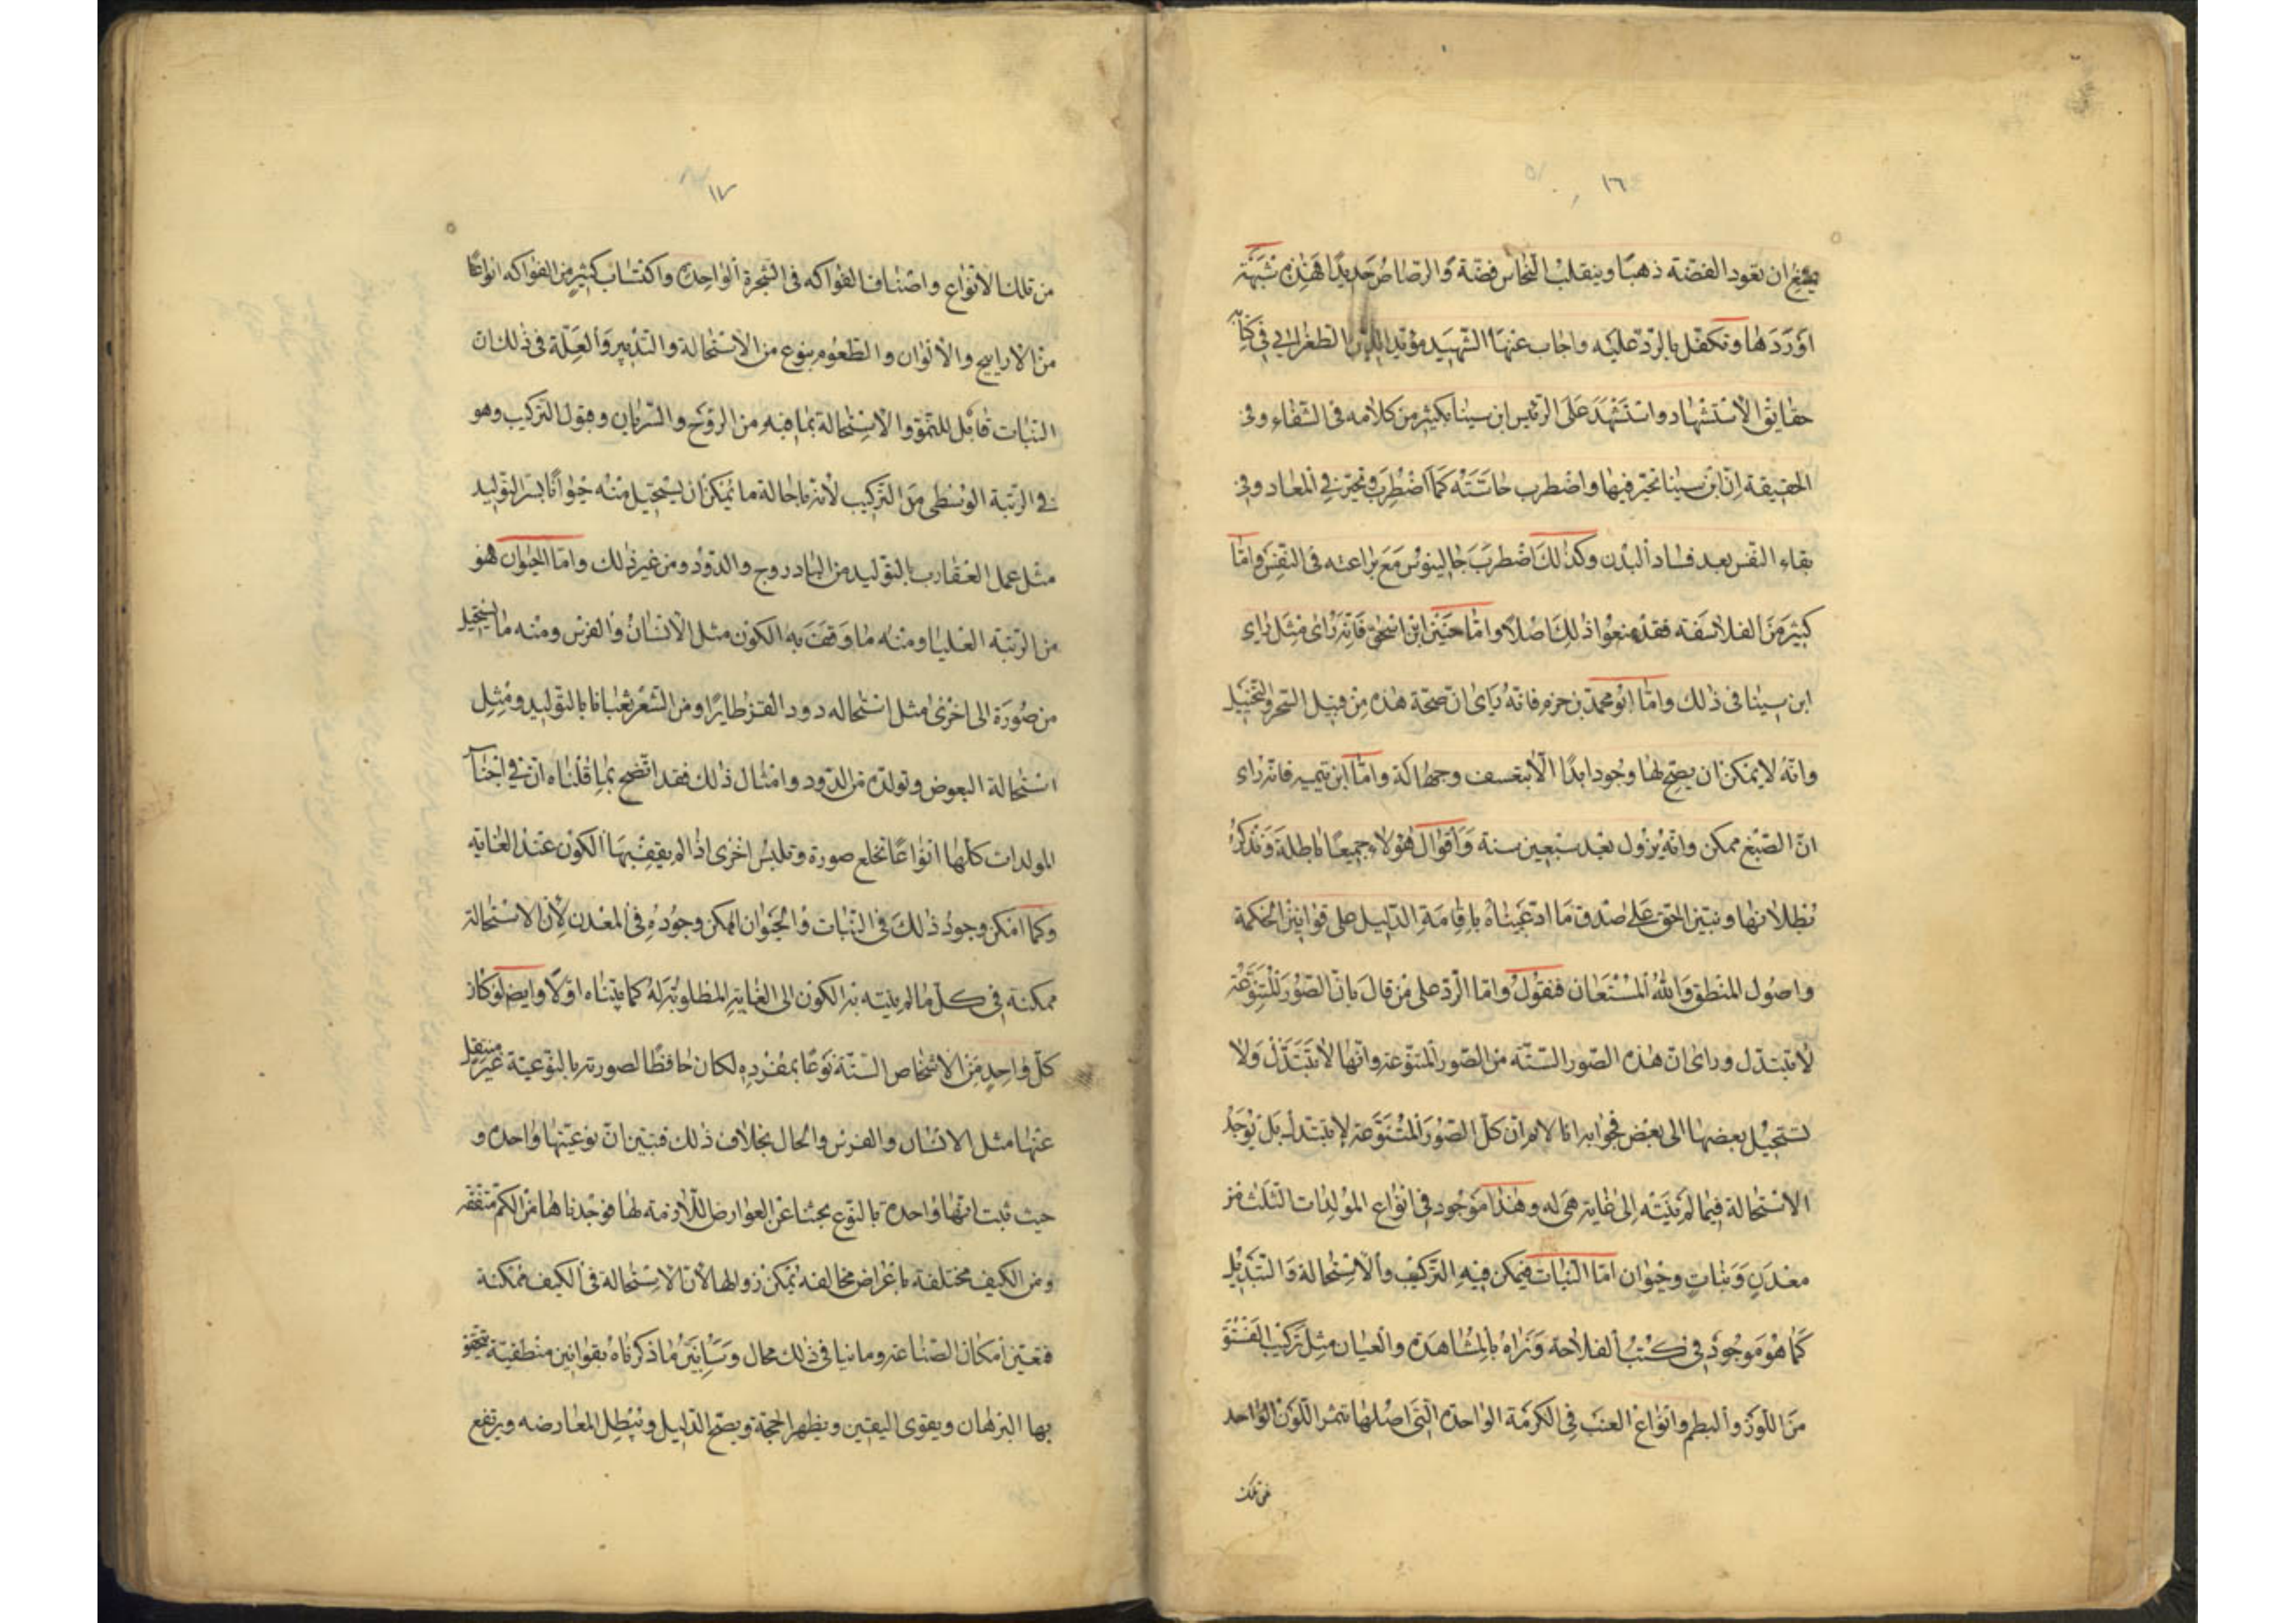 ١٦
ان تعود الفضة ذهبا وينقلب النحاس فضة والرصاص حديدا فهذه شبهة
اوردها وتكفل بالرد عليه واجاب عنها الشهيد مؤيد الدين الطغرائي في كتاب
حقايق الاستشهاد واستشهد على الرئيس ابن سينا بكثير من كلامه في الشفاء وفي
الحقيقة ان ابن سينا تحير فيها واضطرب حاسته كما اضطرب وتحير في المعاد وفي
بقاء النفس بعد فساد البدن وكذلك اضطرب جالينوس مع براعته في النفس واما
كثير من الفلاسفة فقد منعوا ذلك اصلا واما حنين ابن اسحق فانه رأى مثل رأي
ابن سينا في ذلك واما ابو محمد بن حزم فانه رأى ان صحة هذه من قبيل السحر والتخييل
وانه لا يمكن ان يصح لها وجود ابدا الا بتعسف وجهالة واما ابن تيميه فانه رأى
ان الصبغ ممكن وانه يزول بعد سبعين سنة واقوال هؤلاء جميعا باطلة ونذكر
بطلانها ونبين الحق على صدق ما ادعيناه باقامة الدليل على قوانين الحكمة
واصول المنطق والله المستعان فنقول واما الرد على من قال بان الصور المتنوعة
لا تتبدل ورأى ان هذه الصور الستة من الصور المتنوعة وانها لا تتبدل ولا
تستحيل بعضها الى بعض فجوابه انا لا نم ان كل الصور المتنوعة لا تتبدل بل توجد
الاستحالة فيما لم ينته الى غاية هي له وهذا موجود في انواع المولدات الثلث من
معدن ونبات وحيوان اما النبات فيمكن فيه التركيب والاستحالة والتبديل
كما هو موجود في كتب الفلاحة ونراه بالمشاهدة والعيان مثل تركيب الفستق
من اللوز والبطم وانواع العنب في الكرمة الواحدة التي اصلها تثمر اللون الواحد
من تلك
١٧
من تلك الانواع واصناف الفواكه في الشجرة الواحدة واكتساب كثير من الفواكه انواعا
من الاراييح والالوان والطعوم بنوع من الاستحالة والتدبير والعلة في ذلك ان
النبات قابل للنمو والاستحالة بما فيه من الروح والسريان وقبول التركيب وهو
في الرتبة الوسطى من التركيب لانه باحالة ما يمكن ان يستحيل منه حيوانا بسر التوليد
مثل عمل العقارب بالتوليد من البادروج والدود ومن غير ذلك واما الحيوان فهو
من الرتبة العليا ومنه ما وقف به الكون مثل الانسان والفرس ومنه ما يستحيل
من صورة الى اخرى مثل استحاله دود القز طايرا ومن الشعر ثعبانا بالتوليد ومثل
استحالة البعوض وتولده من الدود وامثال ذلك فقد اتضح بما قلناه ان في اجناس
المولدات كلها انواعا تخلع صورة وتلبس اخرى اذا لم يقف بها الكون عند الغاية
وكما امكن وجود ذلك في النبات والحيوان امكن وجوده في المعدن لان الاستحالة
ممكنة في كل ما لم ينته به الكون الى الغاية المطلوبة له كما بيناه اولا وايضا لو كان
كل واحد من الاشخاص الستة نوعا بمفرده لكان حافظا لصورته بالنوعية غير منتقل
عنها مثل الانسان والفرس والحال بخلاف ذلك فتبين ان نوعيتها واحدة و
حيث ثبت انها واحدة بالنوع بحثنا عن العوارض اللازمة لها فوجدناها من الكم متفقة
ومن الكيف مختلفة باعراض مخالفه يمكن زوالها لان الاستحالة في الكيف ممكنة
فتعين امكان الصناعة وما نيا في ذلك محال وسأبين ما ذكرناه بقوانين منطقية يتحقق
بها البرهان ويقوى اليقين ويظهر الحجة ويصح الدليل وتبطل المعارضه ويرتفع